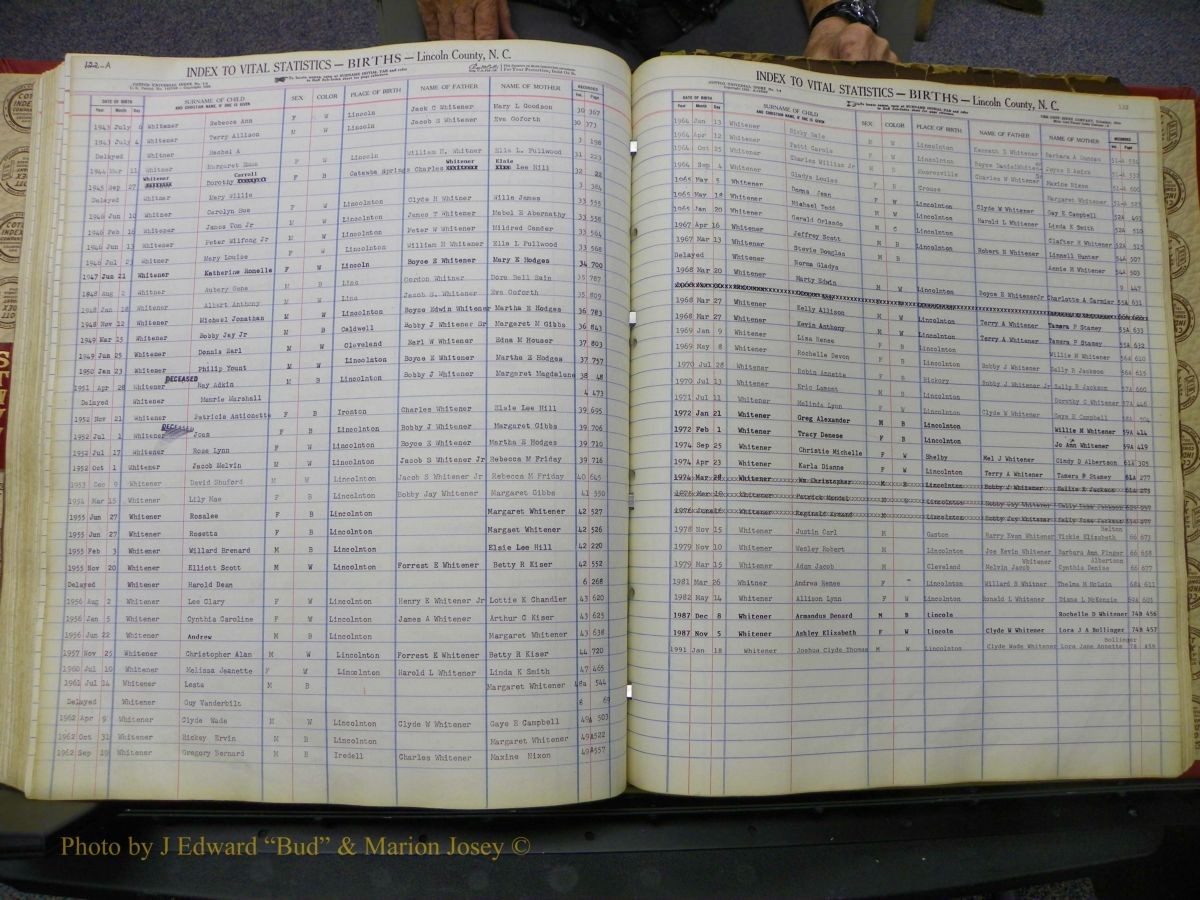 122-A
INDEX TO VITAL STATISTICS — BIRTHS — Lincoln County, N. C.
DATE OF BIRTH SURNAME OF CHILD AND CHRISTIAN NAME, IF ONE IS GIVEN SEX COLOR PLACE OF BIRTH NAME OF FATHER NAME OF MOTHER RECORDED
Year Month Day Vol. Page
1943 July Whitener Rebecca Ann F W Lincoln Jack C Whitener Mary L Goodson 30 367
1943 July 4 Whitener Terry Allison M W Lincoln Jacob S Whitener Eva Goforth 30 373
Delayed Whitner Rachel A 3 198
1944 Mar 11 Whitener Margaret Emma F W Lincoln William H. Whitner Ella L. Fullwood 31 223
1945 Sep 27 Whitener Dorothy Carroll F B Catawba Springs Charles Whitener Elsie Lee Hill 32 22
Delayed Whitner Mary Willie 3 384
1946 Jun 10 Whitener Carolyn Sue F W Lincolnton Clyde H Whitener Wilma James 33 555
1946 Feb 16 Whitener James Tom Jr M W Lincolnton James T Whitener Mabel E Abernathy 33 558
1946 Jun 13 Whitener Peter Wilfong Jr M W Lincolnton Peter W Whitener Mildred Conder 33 564
1946 Jul 23 Whitener Mary Louise F W Lincolnton William H Whitener Ella L Fullwood 33 568
1947 Jun 21 Whitener Katherine Romelle F W Lincoln Boyce E Whitener Mary E Hodges 34 700
1948 Aug 2 Whitner Aubery Gene M B Linc Gordon Whitner Dora Bell Sain 35 787
1948 Jan 18 Whitener Albert Anthony M W Linc Jacob S. Whitener Eva Goforth 35 809
1948 Nov 12 Whitener Michael Jonathan M W Lincolnton Boyce Edwin Whitener Martha E Hodges 36 783
1949 Mar 15 Whitener Bobby Jay Jr M B Caldwell Bobby J Whitener Sr Margaret M Gibbs 36 843
1949 Jun 25 Whitener Dennis Earl M W Cleveland Earl W Whitener Edna M Houser 37 803
1950 Jan 23 Whitener Philip Yount M W Lincolnton Boyce E Whitener Martha E Hodges 37 757
1951 Apr 28 Whitener DECEASED Ray Adkin M B Lincolnton Bobby J Whitener Margaret Magdalene 38 48
Delayed Whitener Manrie Marshall 4 473
1952 Nov 21 Whitener Patricia Antionette F B Ironton Charles Whitener Elsie Lee Hill 39 695
1952 Jul 1 Whitener DECEASED Joan F B Lincolnton Bobby J Whitener Margaret Gibbs 39 706
1952 Jul 17 Whitener Rose Lynn F W Lincolnton Boyce E Whitener Martha E Hodges 39 710
1952 Oct 1 Whitener Jacob Melvin M W Lincolnton Jacob S Whitener Jr Rebecca M Friday 39 716
1953 Dec 9 Whitener David Shuford M W Lincolnton Jacob S Whitener Jr Rebecca M Friday 40 645
1954 Mar 15 Whitener Lily Mae F B Lincolnton Bobby Jay Whitener Margaret Gibbs 41 550
1955 Jun 27 Whitener Rosalee F B Lincolnton Margaret Whitener 42 527
1955 Jun 27 Whitener Rosetta F B Lincolnton Margaet Whitener 42 526
1955 Feb 3 Whitener Willard Brenard M B Lincolnton Elsie Lee Hill 42 220
1955 Nov 20 Whitener Elliott Scott M W Lincolnton Forrest E Whitener Betty R Kiser 42 552
Delayed Whitener Harold Dean 6 268
1956 Aug 2 Whitener Lee Clary F W Lincolnton Henry E Whitener Jr Lottie K Chandler 43 620
1956 Jan 5 Whitener Cynthia Caroline F W Lincolnton James A Whitener Arthur C Kiser 43 625
1956 Jun 22 Whitener Andrew M B Lincolnton Margaret Whitener 43 638
1957 Nov 25 Whitener Christopher Alan M W Lincolnton Forrest E Whitener Betty R Kiser 44 720
1960 Jul 10 Whitener Melissa Jeanette F W Lincolnton Harold L Whitener Linda K Smith 47 465
1961 Jul 14 Whitener Lesta M B Margaret Whitener 48a 544
Delayed Whitener Guy Vanderbilt 8 69
1962 Apr 9 Whitener Clyde Wade M W Lincolnton Clyde W Whitener Gaye E Campbell 49A 503
1962 Oct 31 Whitener Rickey Ervin M B Lincolnton Margaret Whitener 49A 522
1962 Sep 19 Whitener Gregory Bernard M B Iredell Charles Whitener Maxine Nixon 49A 557
INDEX TO VITAL STATISTICS — BIRTHS — Lincoln County, N. C.
DATE OF BIRTH SURNAME OF CHILD AND CHRISTIAN NAME, IF ONE IS GIVEN SEX COLOR PLACE OF BIRTH NAME OF FATHER NAME OF MOTHER RECORDED
Year Month Day Vol. Page
1964 Jan 13 Whitener Ricky Dale M W Lincolnton Kenneth D Whitener Barbara A Duncan
1964 Apr 12 Whitener Patti Carole F W Lincolnton
1964 Oct 25 Whitener Charles William Jr M B Mooresville Charles W Whitener Maxine Nixon 600
1964 Sep 4 Whitener Gladys Louise F B Crouse Margaret Whitener 523
1965 May 5 Whitener Donna Jean F W Lincolnton Clyde W Whitener Gay E Campbell 52A 493
1965 May 18 Whitener Michael Todd M W Lincolnton Harold L Whitener Linda K Smith 52A 510
1965 Jan 20 Whitener Gerald Orlando M C Lincolnton 52A 515
1967 Apr 16 Whitener Jeffrey Scott M B Lincolnton Robert N Whitener Linnell Hunter 54A 507
1967 Mar 13 Whitener Stevie Douglas M B Lincolnton Annie M Whitener 54A 503
Delayed Whitener Norma Gladys 9 447
1968 Mar 20 Whitener Marty Edwin M W Lincolnton Boyce E Whitener Jr Charlotte A Carnier 55A 631
1968 Mar 27 Whitener Kelly Allison F W Lincolnton Terry A Whitener Tamara P Stamey 55A 633
1968 Mar 27 Whitener Kevin Anthony M W Lincolnton Terry A Whitener Tamera P Stamey 55A 632
1969 Jan 9 Whitener Lisa Renee F B Lincolnton Willie M Whitener 56A 610
1969 May 8 Whitener Rochelle Devon F B Lincolnton Bobby J Whitener Sally R Jackson 56A 615
1970 Jul 28 Whitener Robin Annette F B Hickory Bobby J Whitener Jr Sally R Jackson 57A 660
1970 Jul 13 Whitener Eric Lamont M B Lincolnton Dorothy C Whitener 57A 446
1971 Jul 11 Whitener Melinda Lynn F W Lincolnton Clyde W Whitener Gaye E Campbell
1972 Jan 21 Whitener Greg Alexander M B Lincolnton Willie M Whitener 59A 414
1972 Feb 1 Whitener Tracy Denese F B Lincolnton Jo Ann Whitener 59A 419
1974 Sep 25 Whitener Christie Michelle F W Shelby Mel J Whitener Cindy D Albertson 61A 305
1974 Apr 23 Whitener Karla Dianne F W Lincolnton Terry A Whitener Tamera P Stamey 61A 277
1974 Mar 28 Whitener Wm Christopher M B Lincolnton Bobby J Whitener Sallie R Jackson 61A 275
Whitener Patrick Mondel M Lincolnton Bobby Jay Whitener
Whitener Reginald M Lincolnton Bobby Jay Whitener
1978 Nov 15 Whitener Justin Carl M Gaston Harry Evan Whitener Vickie Elizabeth Helton 66 673
1979 Nov 10 Whitener Wesley Robert M Lincolnton Joe Kevin Whitener Barbara Ann Finger 66 658
1979 Mar 15 Whitener Adam Jacob M Cleveland Melvin Jacob Whitener Cynthia Denise Albertson 66 677
1981 Mar 26 Whitner Andrea Renee F Lincolnton Willard B Whitner Thelma M McLain 68A 611
1982 May 14 Whitener Allison Lynn F W Lincolnton Ronald L Whitener Diana L McKenzie 69A 605
1987 Dec 8 Whitener Armandus Denard M B Lincoln Rochelle D Whitener 74B 456
1987 Nov 5 Whitener Ashley Elizabeth F W Lincoln Clyde W Whitener Lora J A Bollinger 74B 457
1991 Jan 18 Whitener Joshua Clyde Thomas M W Lincolnton Clyde Wade Whitener Lora Jane Annette Bollinger 78 459
Photo by J Edward “Bud” & Marion Josey ©